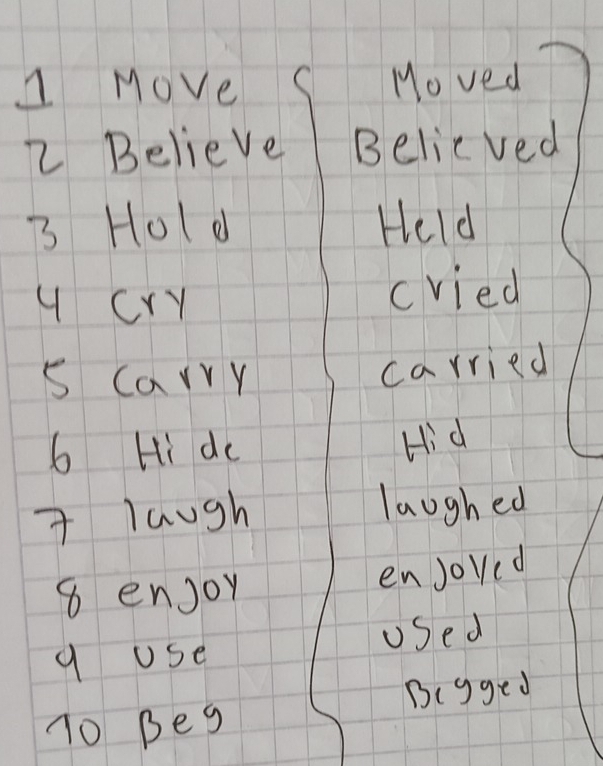 1 Move Moved
2 Believe Believed
3 Hold Held
4 Cry cried
5 Carry carried
6 Hide Hid
7 laugh laughed
8 enjoy enjoyed
9 use used
10 Beg Begged